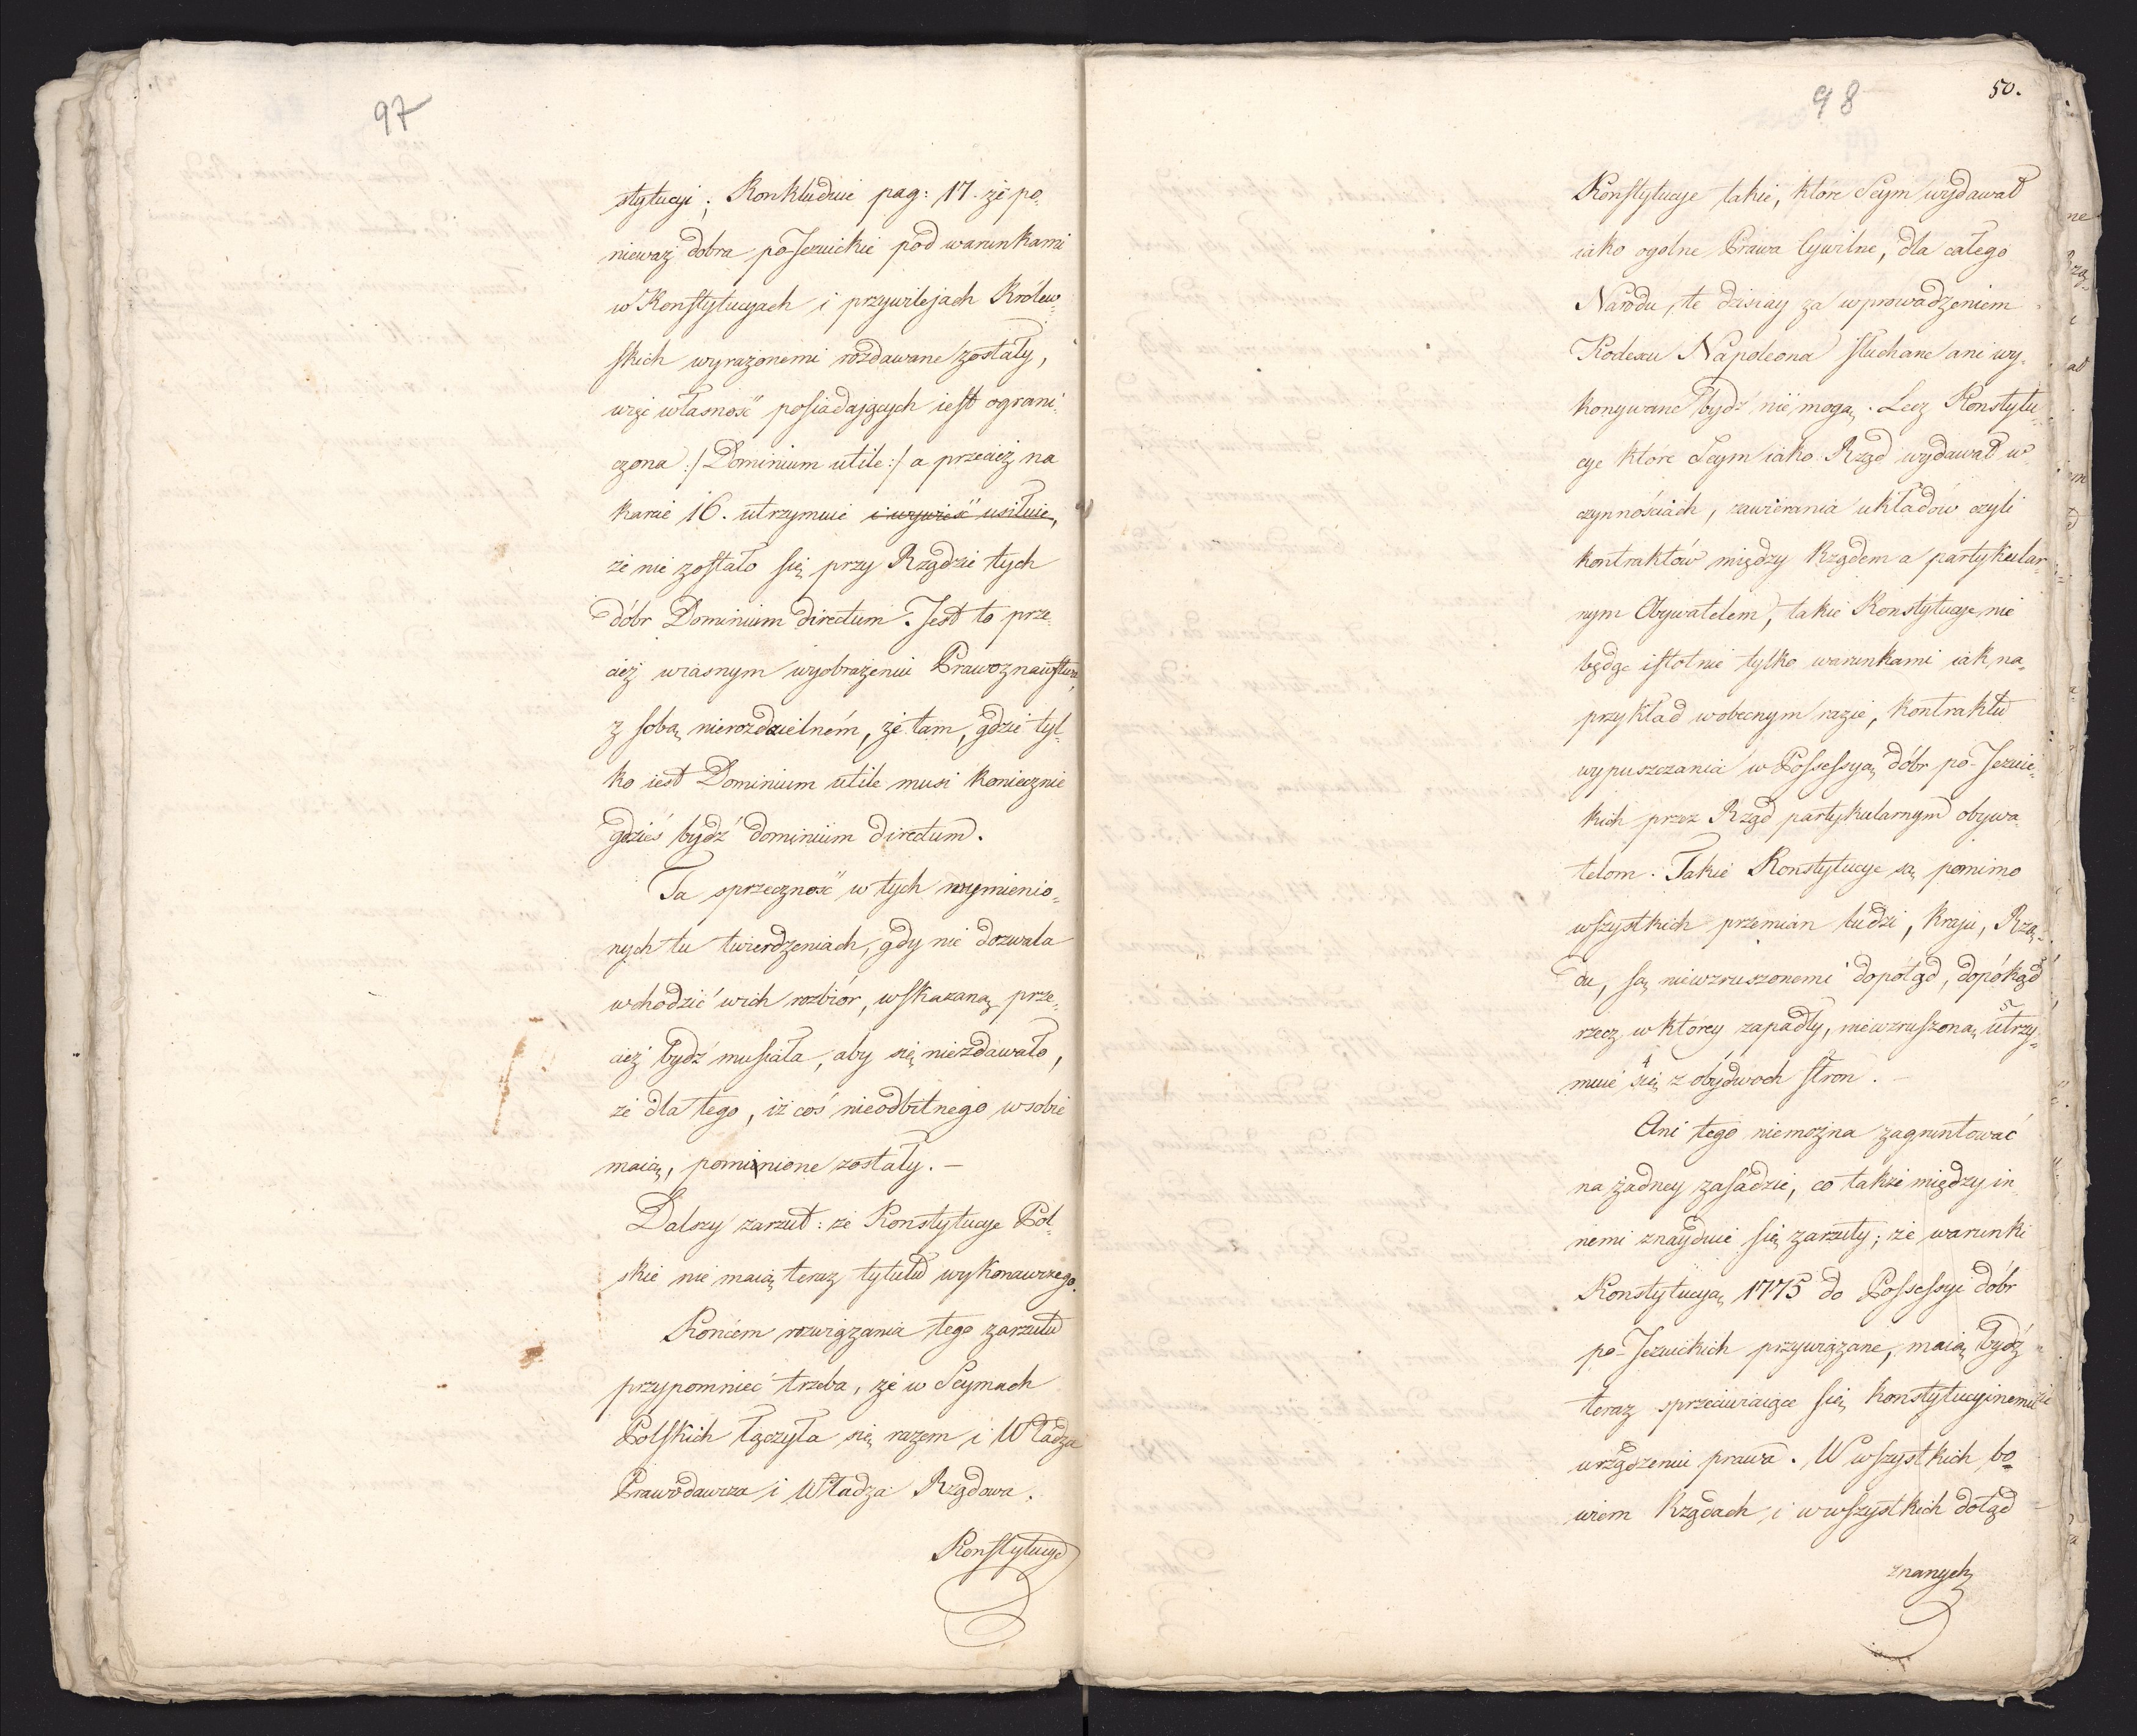 97
stytucyi; Konkluduie pag: 17. że po-
nieważ dobra po Jezuickie pod warunkami
w Konstytucyach i przywilejach Królew-
skich wyrażonemi rozdawane zostały,
więc własność posiadających iest ograni-
czona :/ Dominium utile :/ a przecież na
karcie 16. utrzymuie i wywieść usiłuie,
że nie zostało się przy Rządzie tych
dóbr Dominium directum. Jest to prze-
cież własnym wyobrażeniu Prawoznawstwa,
z sobą nierozdzielném, że tam, gdzie tyl-
ko iest Dominium utile musi koniecznie
gdzieś bydź dominium directum.
Ta sprzeczność w tych wymienio-
nych tu twierdzeniach, gdy nie dozwala
wchodzić w ich rozbiór, wskazaną prze-
cież bydź musiała, aby się niezdawało,
że dla tego, iż coś nieodbitnego w sobie
maią, pominione zostały. —
Dalszy zarzut: że Konstytucye Pol-
skie nie maią teraz tytułu wykonawczego.
Końcem rozwiązania tego zarzutu
przypomnieć trzeba, że w Seymach
Polskich łączyła się razem i Władza
Prawodawcza i Władza Rządowa.
Konstytucye
98
50.
Konstytucye takie, które Seym wydawał
iako ogolne Prawa Cywilne, dla całego
Narodu, te dzisiay za wprowadzeniem
Kodexu Napoleona słuchane ani wy-
konywane bydź nie mogą. Lecz Konstytu-
cye które Seym iako Rząd wydawał w
czynnościach, zawierania układów czyli
kontraktów między Rządem a partykular-
nym Obywatelem, takie Konstytucye nie
będąc istotnie tylko warunkami iak na-
przykład w obecnym razie, kontraktu
wypuszczania w Possessyą dóbr po-Jezuic-
kich przez Rząd partykularnym obywa-
telom. Takie Konstytucye są pomimo
wszystkich przemian ludzi, Kraju, Rzą-
du, są niewzruszonemi dopótąd, dopókąd
rzecz w którey zapadły, niewzruszoną utrzy-
muie się z obydwoch stron. —
Ani tego niemożna zagruntować
na żadney zasadzie, co także między in-
nemi znayduie się zarzuty; że warunki
Konstytucyą 1775 do Possessyi dóbr
po-Jezuickich przywiązane, maią bydź
teraz sprzeciwiaiące się konstytucyinemu
urządzeniu prawa. W wszystkich bo-
wiem Rządach i w wszystkich dotąd
znanych